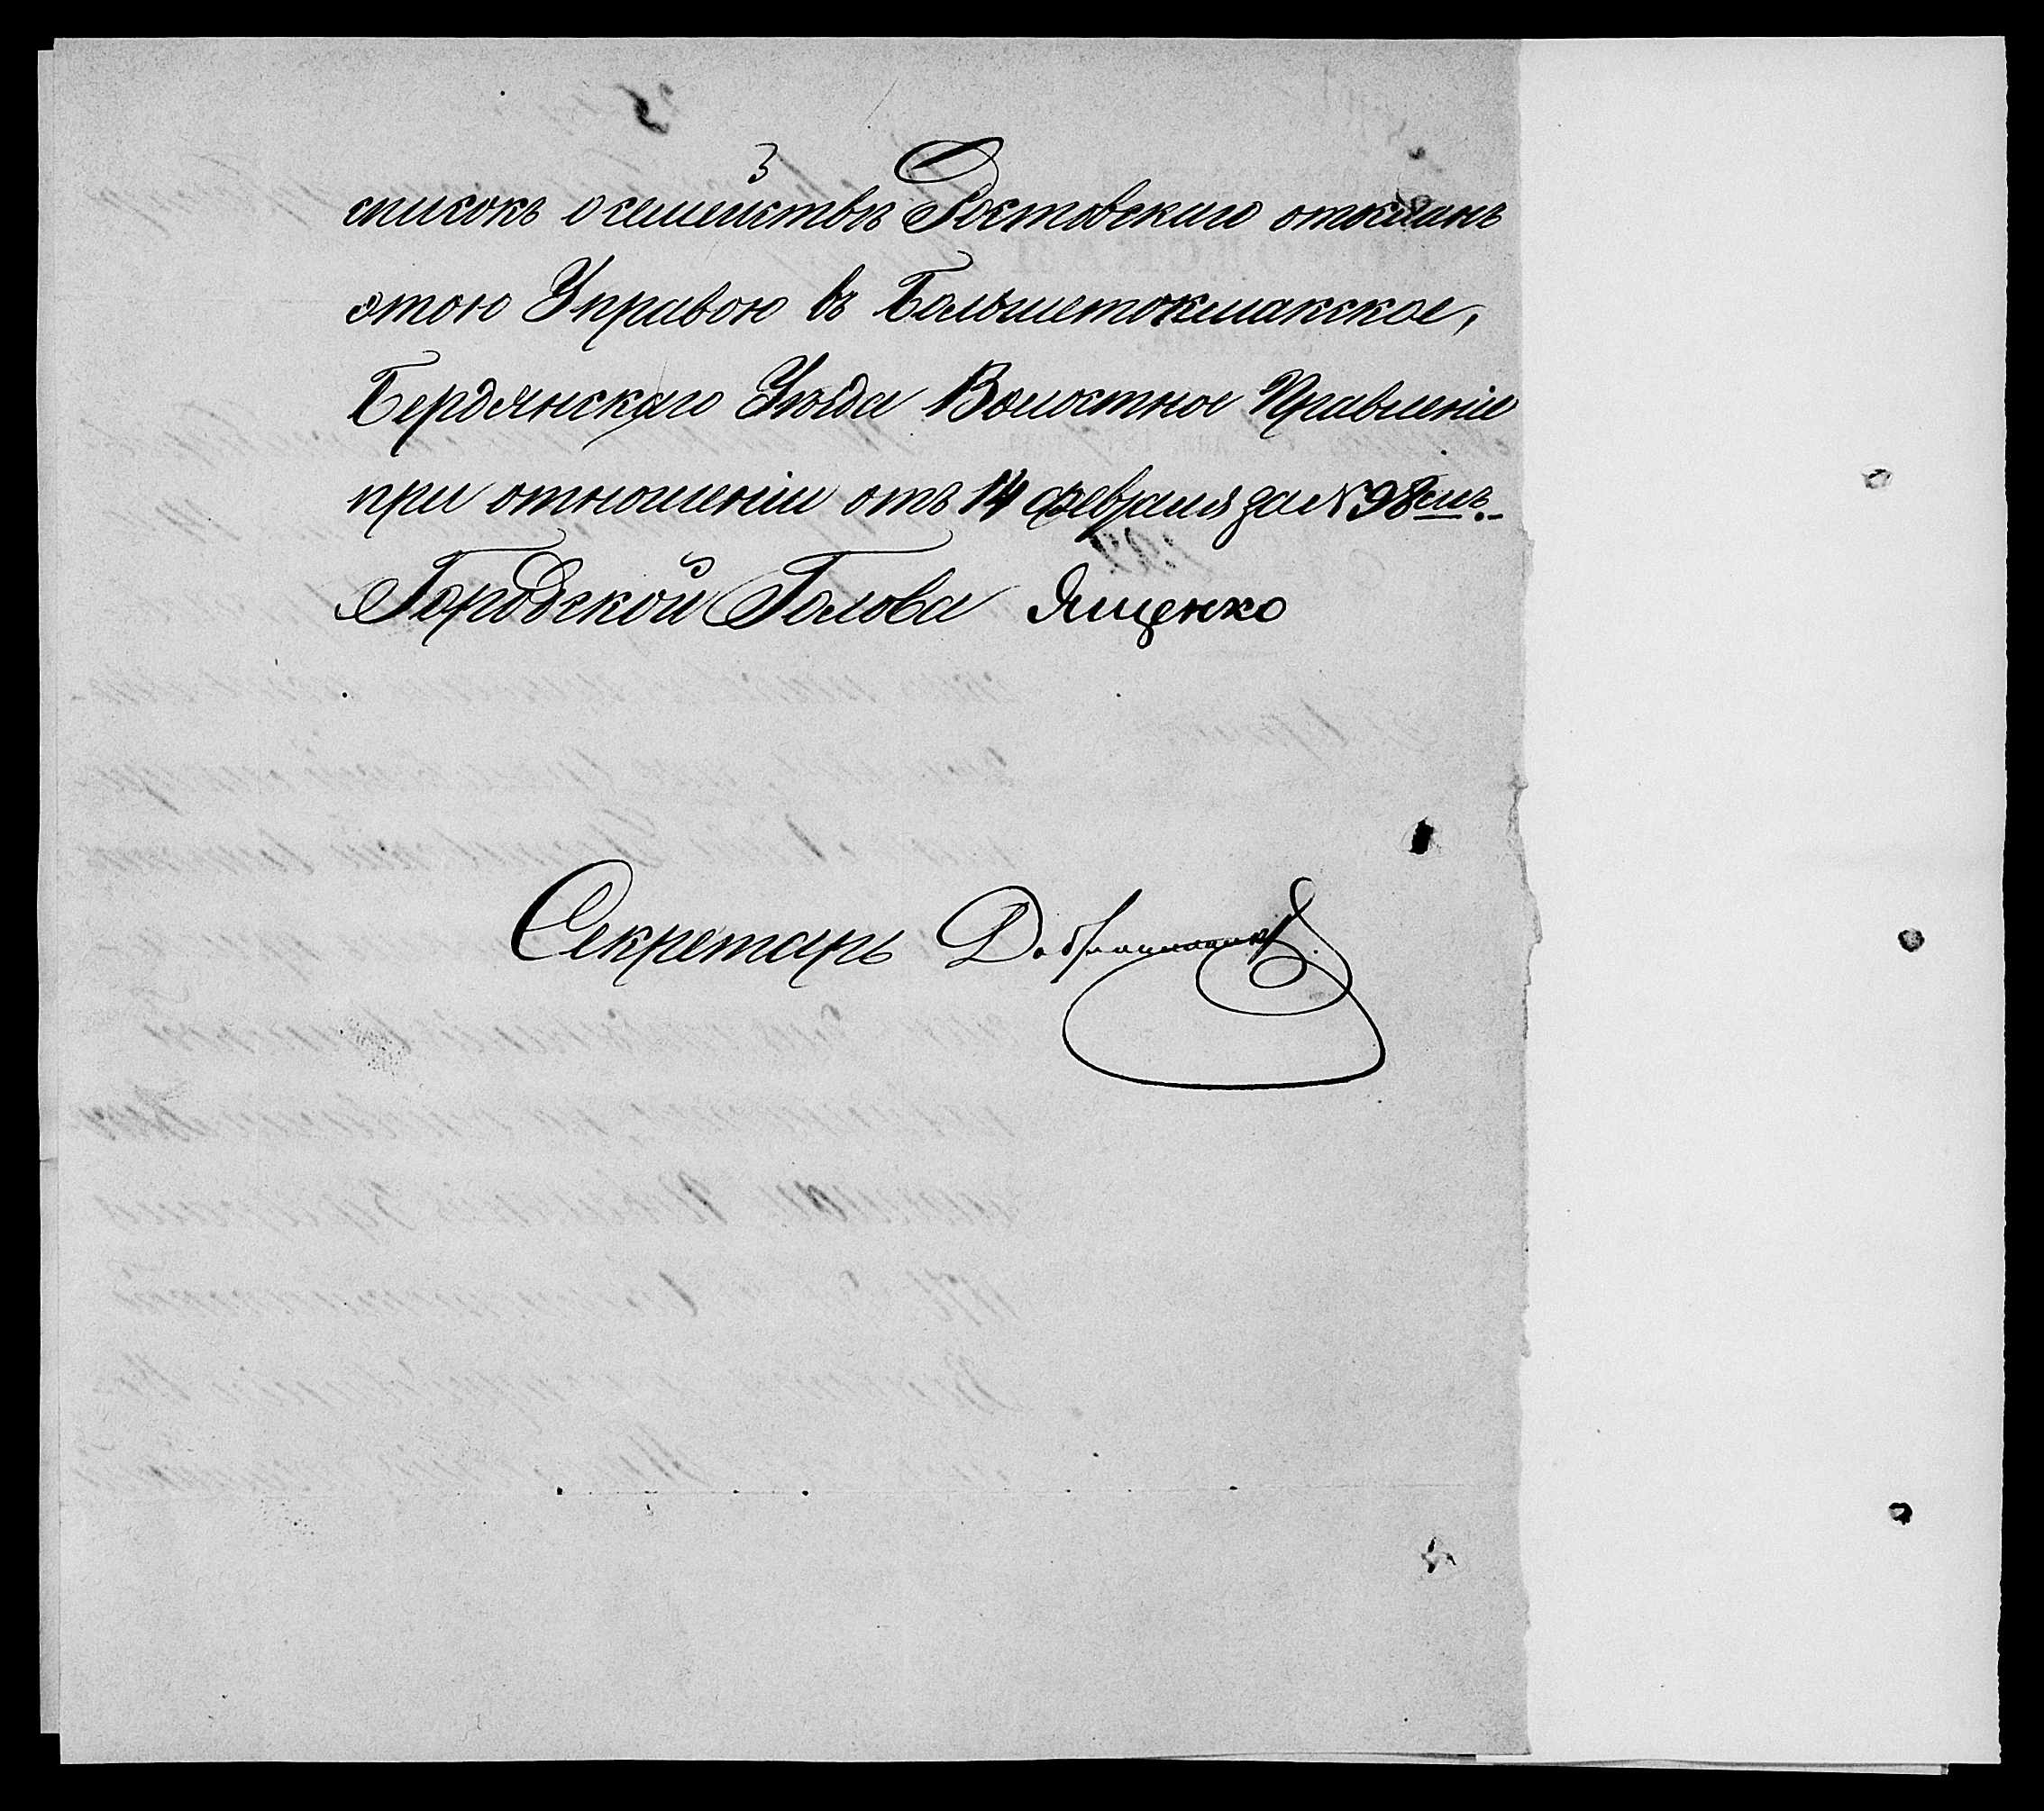 списокъ о семействѣ Ростовскаго отосланъ
этою Управою въ Большетокмакское,
Бердянскаго Уѣзда Волостное Правленіе
при отношеніи отъ 14 февраля за № 98мъ.
Городской Голова Ященко
Секретарь